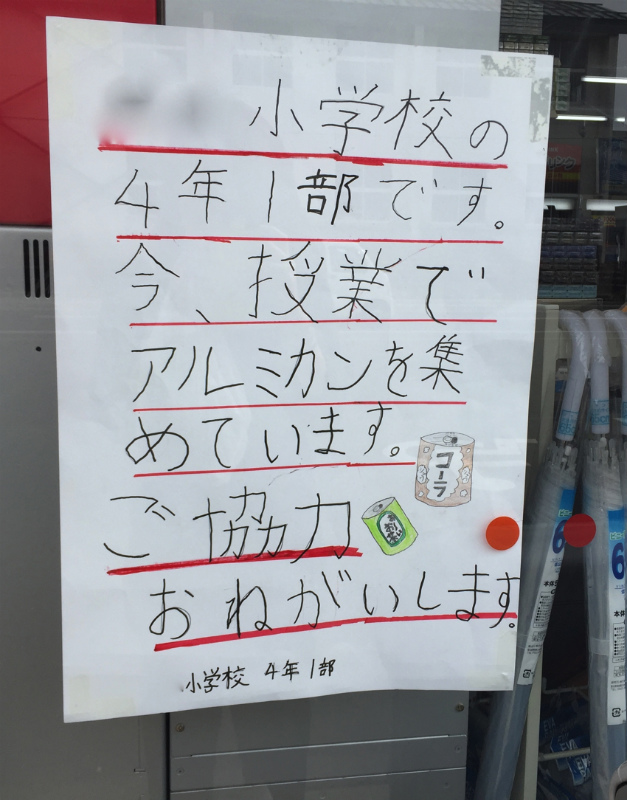 小学校の
4年1部です。
今、授業で
アルミカンを集
めています。
コーラ
ご協力
おねがいします。
小学校 4年1部